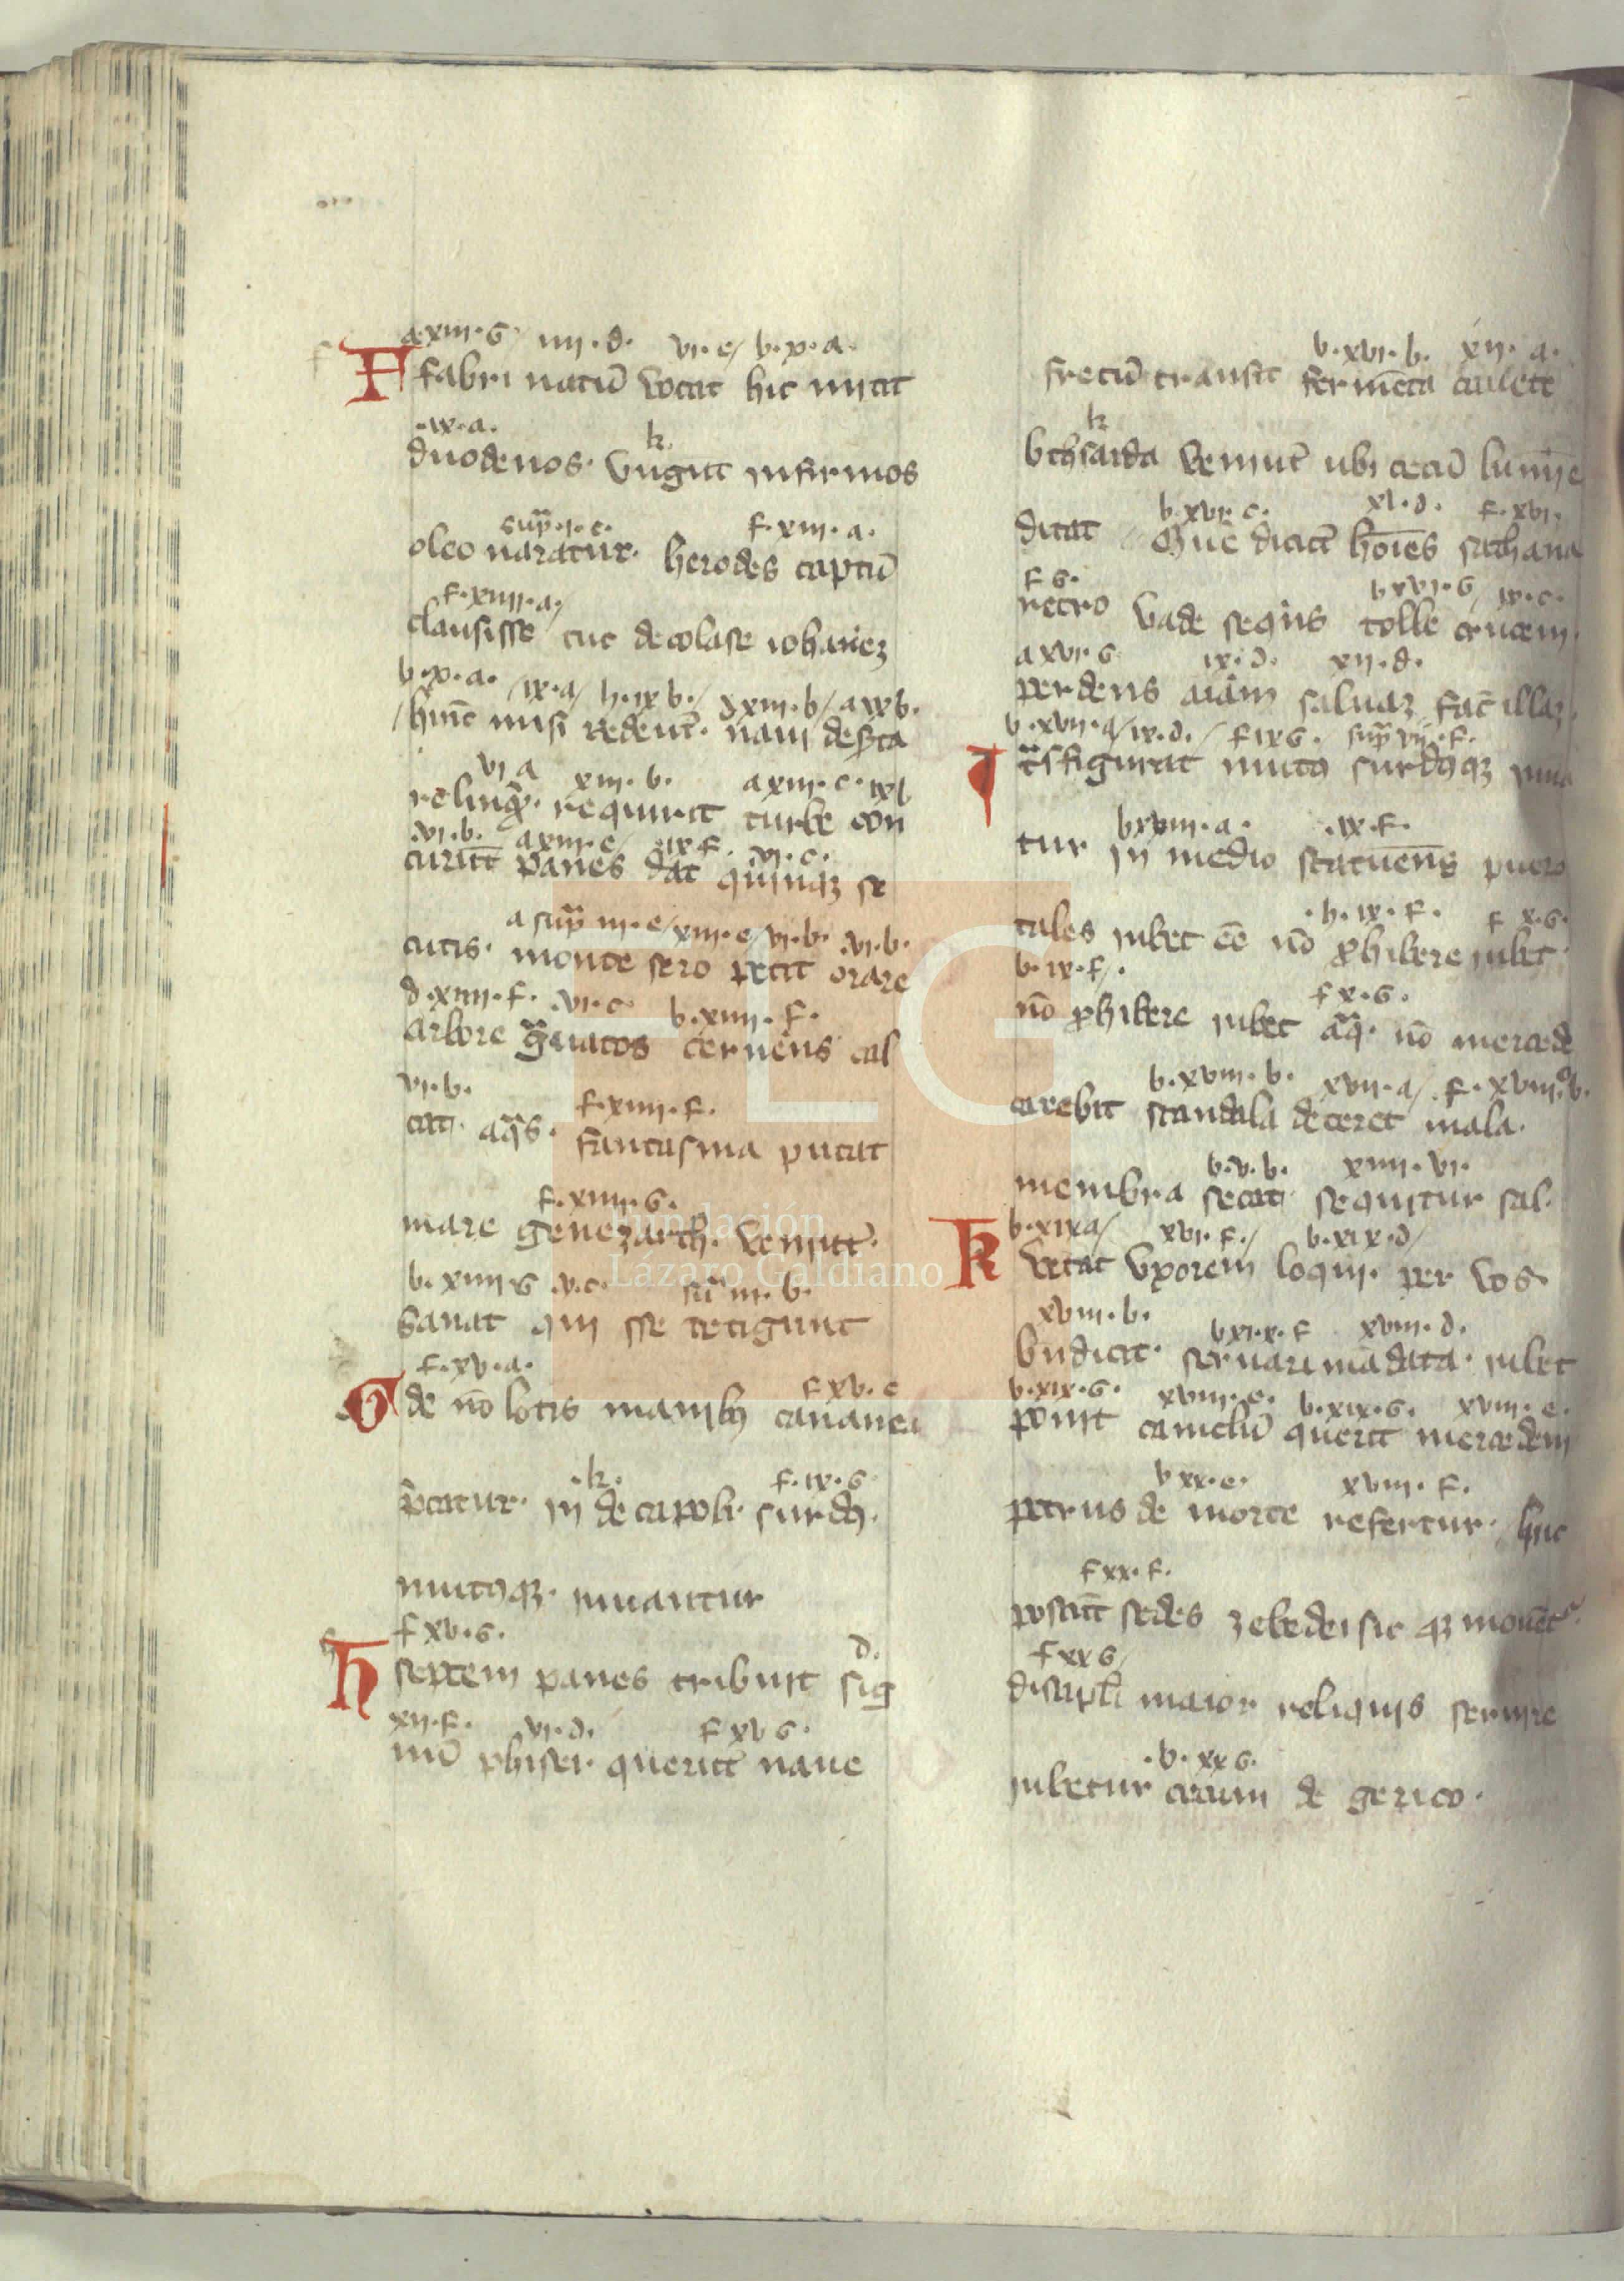 a xiii · G · iiii · d · vi · e / b · x · a ·
F fabri natū vocat hic mitit
· ix · a · k
duodenos · vngūt infirmos
sup̄ · i · e · f · xiii · a ·
oleo naratur · herodes captū
f · xiiii · a /
clausisse tuc decolase iohānez
b · x · a · / ix · a / h · ix b · / xiii · b / a ix b ·
hinc misi redeūt · nam des̄ta
vi a xiii · b · a xiiii · c · ix b
relinq̄ · requirūt turbe con
vi · b · a xiiii · e / ix f · vi · c ·
curūt panes dat quinqz se
a sup̄ iii · e / xiiii · e / vi · b · vi · b ·
cutis · monte sero petit orare
d · xiiii · f · vi · c · b · xiiii · f ·
arbore gͣuatos cernens cal
vi · b · f · xiiii · f ·
cat · aq̄s · fantasma putat
f · xiiii · G ·
mare genezarth · veniūt ·
b · xiiii G · v · c · sū iii · b ·
Sanat qui sse tetigunt
f · xv · a · f xv · c
G de nō lotis manibꝫ cananea
· k · f · ix · G
p̄catur · in decapoli · surdꝫ ·
mutꝫqz · iuuantur
f xv · G · d ·
h septem panes tribuit sig
xii · f · vi · d · f xv G ·
nū phiser · querūt naue
b · xvi · b · xii · a ·
fretū transit fermēta cauete
k
bethsaida veniūt ubi cecū lumīe
b · xvi · c · xi · d · f · xvi ·
ditat Quē dicūt hoīes sathana
f G · b xvi · G / ix · c ·
retro vade sequīs tolle crucem ·
a xvi · G ix · d · xii · d ·
perdens aīam saluaz fac̄ illaz
b · xvii · a / ix · d · / f ix G · sup̄ vii · f ·
I tͣsfigurat mutꝫ surdꝫqz iuua
b xviii · a · · ix · f ·
tur in medio statuens puero
· h · ix · f · f x · G ·
tales iubet eē nō ꝓhibere iubet
b · ix · f / ·
f x · G ·
nō ꝓhibere iubet aq̄ · nō mercede
b · xviii · b · xvii · a / f · xviii · b ·
carebit scandala deceret mala ·
b · v · b · xiiii · vi ·
membra secat · sequitur sal ·
b · xix a / xvi · f · / b · xix · d /
K vetat vxorem loqui · per vos
xviii · b · b xix · f xviii · d ·
bn̄dicit · seruari mādata · iubet
b · xix · G · xviii · e · b · xix · G · xviii · e ·
ponit camelū querit mercedem
b xx · e · xviii · f ·
petrus de morte refertur · hinc
f xx · f ·
poscūt sedes zebedei sic qz monēt
f xx G /
discipl̄i maior reliquis seruire
· b · xx G ·
iubetur cecum de gerico ·
Fundación
Lázaro Galdiano